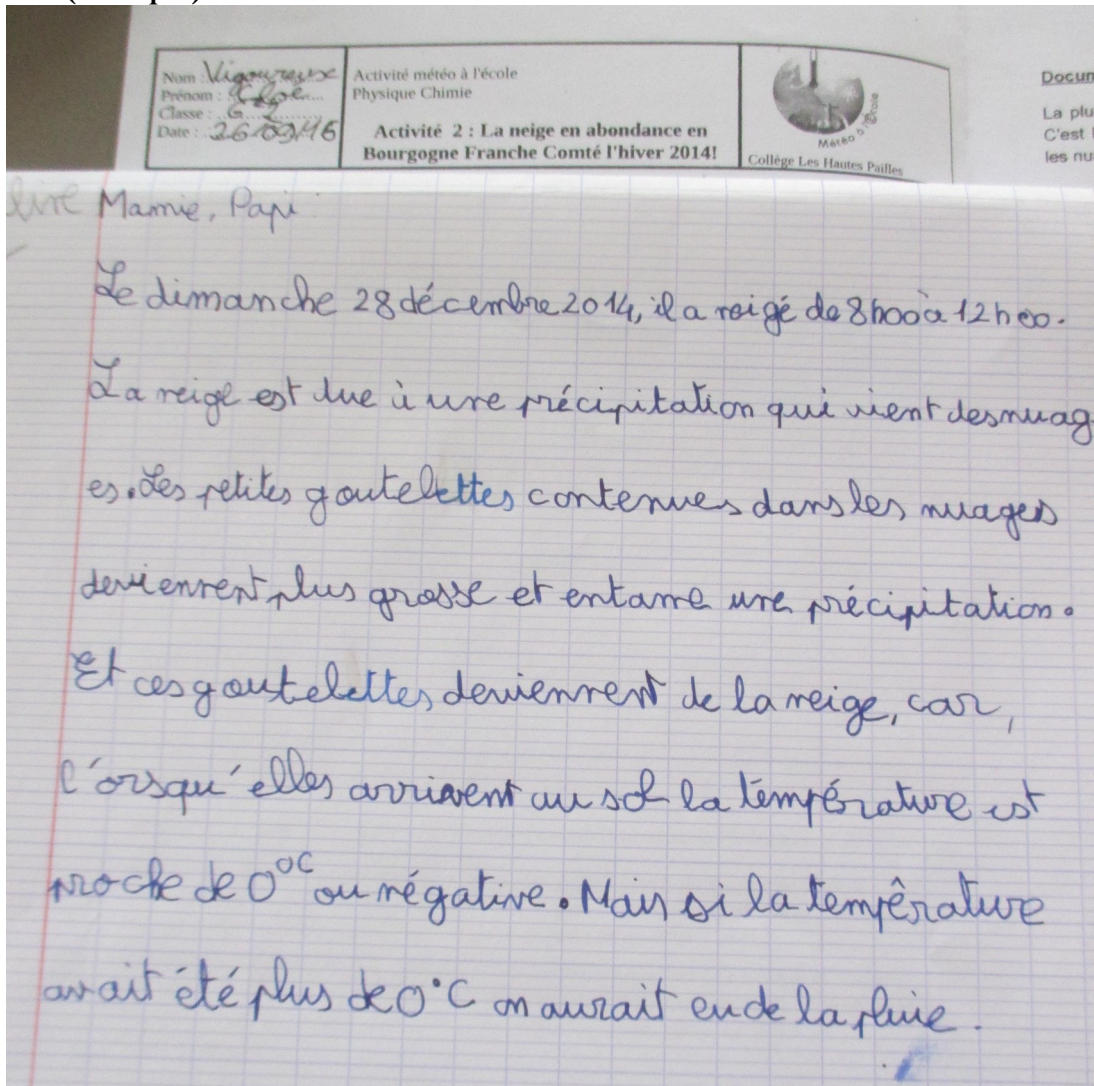 Nom : Vigoureuse
Prénom : Cloé
Classe : 6 2
Date : 26/09/16
Activité météo à l'école
Physique Chimie
Activité 2 : La neige en abondance en
Bourgogne Franche Comté l'hiver 2014!
Météo à l'Ecole
Collège Les Hautes Pailles
Docum
La plu
C'est l
les nu
lire Mamie, Papi
Le dimanche 28 décembre 2014, il a neigé de 8h00 à 12h00.
La neige est due à une précipitation qui vient des nuag
es. Les petites goutelettes contenues dans les nuages
deviennent plus grosse et entame une précipitation.
Et ces goutelettes deviennent de la neige, car,
l'orsqu'elles arrivent au sol la température est
proche de 0°C ou négative. Mais si la tempêrature
avait été plus de 0°C on aurait eu de la pluie.